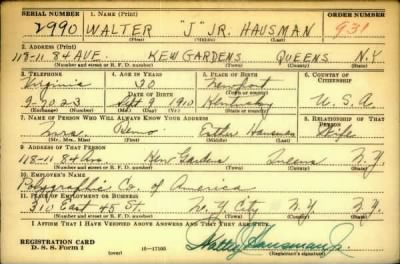 SERIAL NUMBER
1. NAME (Print)
ORDER NUMBER
2990
WALTER "J" JR. HAUSMAN
931
(First) (Middle) (Last)
2. ADDRESS (Print)
118-11 84 AVE. KEW GARDENS QUEENS N.Y.
(Number and street or R. F. D. number) (Town) (County) (State)
3. TELEPHONE
4. AGE IN YEARS
5. PLACE OF BIRTH
6. COUNTRY OF CITIZENSHIP
Virginia
30
Newport
DATE OF BIRTH
(Town or county)
9-7023
Sept 9 1910
Kentucky
U. S. A.
(Exchange) (Number)
(Mo.) (Day) (Yr.)
(State or country)
7. NAME OF PERSON WHO WILL ALWAYS KNOW YOUR ADDRESS
8. RELATIONSHIP OF THAT PERSON
Mrs. Esther Hausman
Wife
(Mr., Mrs., Miss) (First) (Middle) (Last)
9. ADDRESS OF THAT PERSON
118-11 84 Ave. Kew Gardens Queens N.Y.
(Number and street or R. F. D. number) (Town) (County) (State)
10. EMPLOYER'S NAME
Polygraphic Co. of America
11. PLACE OF EMPLOYMENT OR BUSINESS
310 East 45 St. N.Y. City N.Y. N.Y.
(Number and street or R. F. D. number) (Town) (County) (State)
I AFFIRM THAT I HAVE VERIFIED ABOVE ANSWERS AND THAT THEY ARE TRUE.
REGISTRATION CARD
D. S. S. Form 1
(over)
Walter Hausman Jr.
(Registrant's signature)